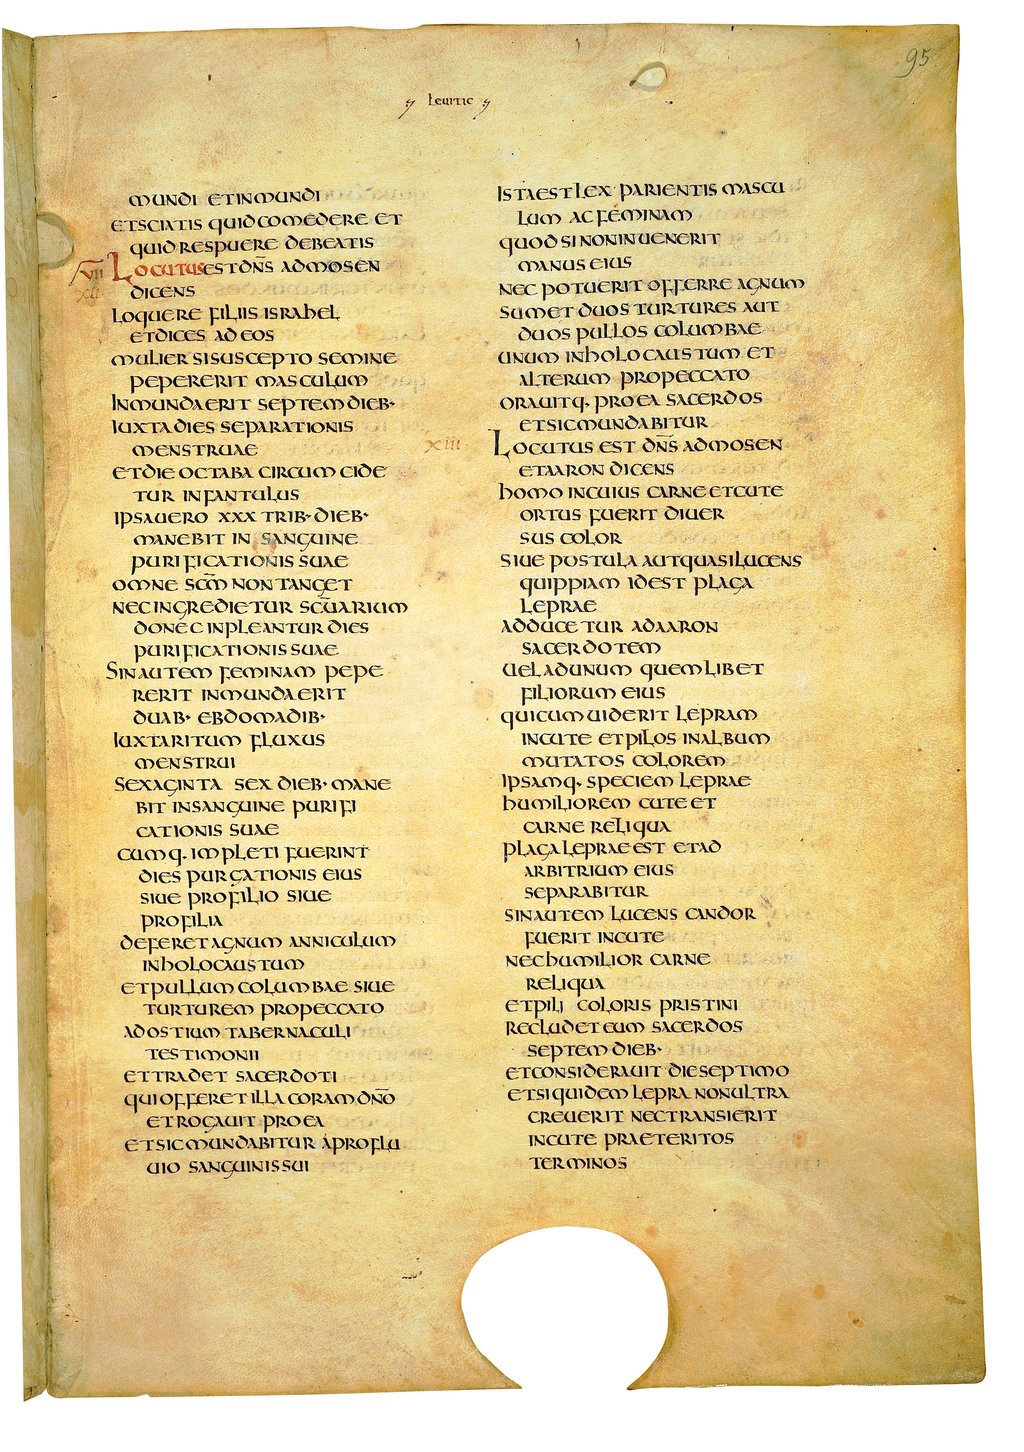 95
leuitic
mundi et inmundi
et sciatis quid comedere et
quid respuere debeatis
VII Locutus est dn̄s ad mosen
XII dicens
loquere filiis israhel
et dices ad eos
mulier si suscepto semine
pepererit masculum
inmunda erit septem dieb·
iuxta dies separationis
menstruae
et die octaba circumcide
tur infantulus
ipsa uero xxx trib· dieb·
manebit in sanguine
purificationis suae
omne sc̄m non tanget
nec ingredietur sc̄uarium
donec inpleantur dies
purificationis suae
Sin autem feminam pepe
rerit inmunda erit
duab· ebdomadib·
iuxta ritum fluxus
menstrui
sexaginta sex dieb· mane
bit in sanguine purifi
cationis suae
cumq· impleti fuerint
dies purgationis eius
siue pro filio siue
pro filia
deferet agnum anniculum
in holocaustum
et pullum columbae siue
turturem pro peccato
ad ostium tabernaculi
testimonii
et tradet sacerdoti
qui offeret illa coram dn̄o
et rogauit pro ea
et sic mundabitur a proflu
uio sanguinis sui
Ista est lex parientis mascu
lum ac feminam
quod si non inuenerit
manus eius
nec potuerit offerre agnum
sumet duos turtures aut
duos pullos columbae
unum in holocaustum et
alterum pro peccato
orauitq· pro ea sacerdos
et sic mundabitur
XIII Locutus est dn̄s ad mosen
et aaron dicens
homo in cuius carne et cute
ortus fuerit diuer
sus color
siue postula aut quasi lucens
quippiam id est plaga
leprae
adducetur ad aaron
sacerdotem
uel ad unum quemlibet
filiorum eius
qui cum uiderit lepram
in cute et pilos in album
mutatos colorem
ipsamq· speciem leprae
humiliorem cute et
carne reliqua
plaga leprae est et ad
arbitrium eius
separabitur
sin autem lucens candor
fuerit in cute
nec humilior carne
reliqua
et pili coloris pristini
recludet eum sacerdos
septem dieb·
et considerauit die septimo
et siquidem lepra non ultra
creuerit nec transierit
in cute praeteritos
terminos